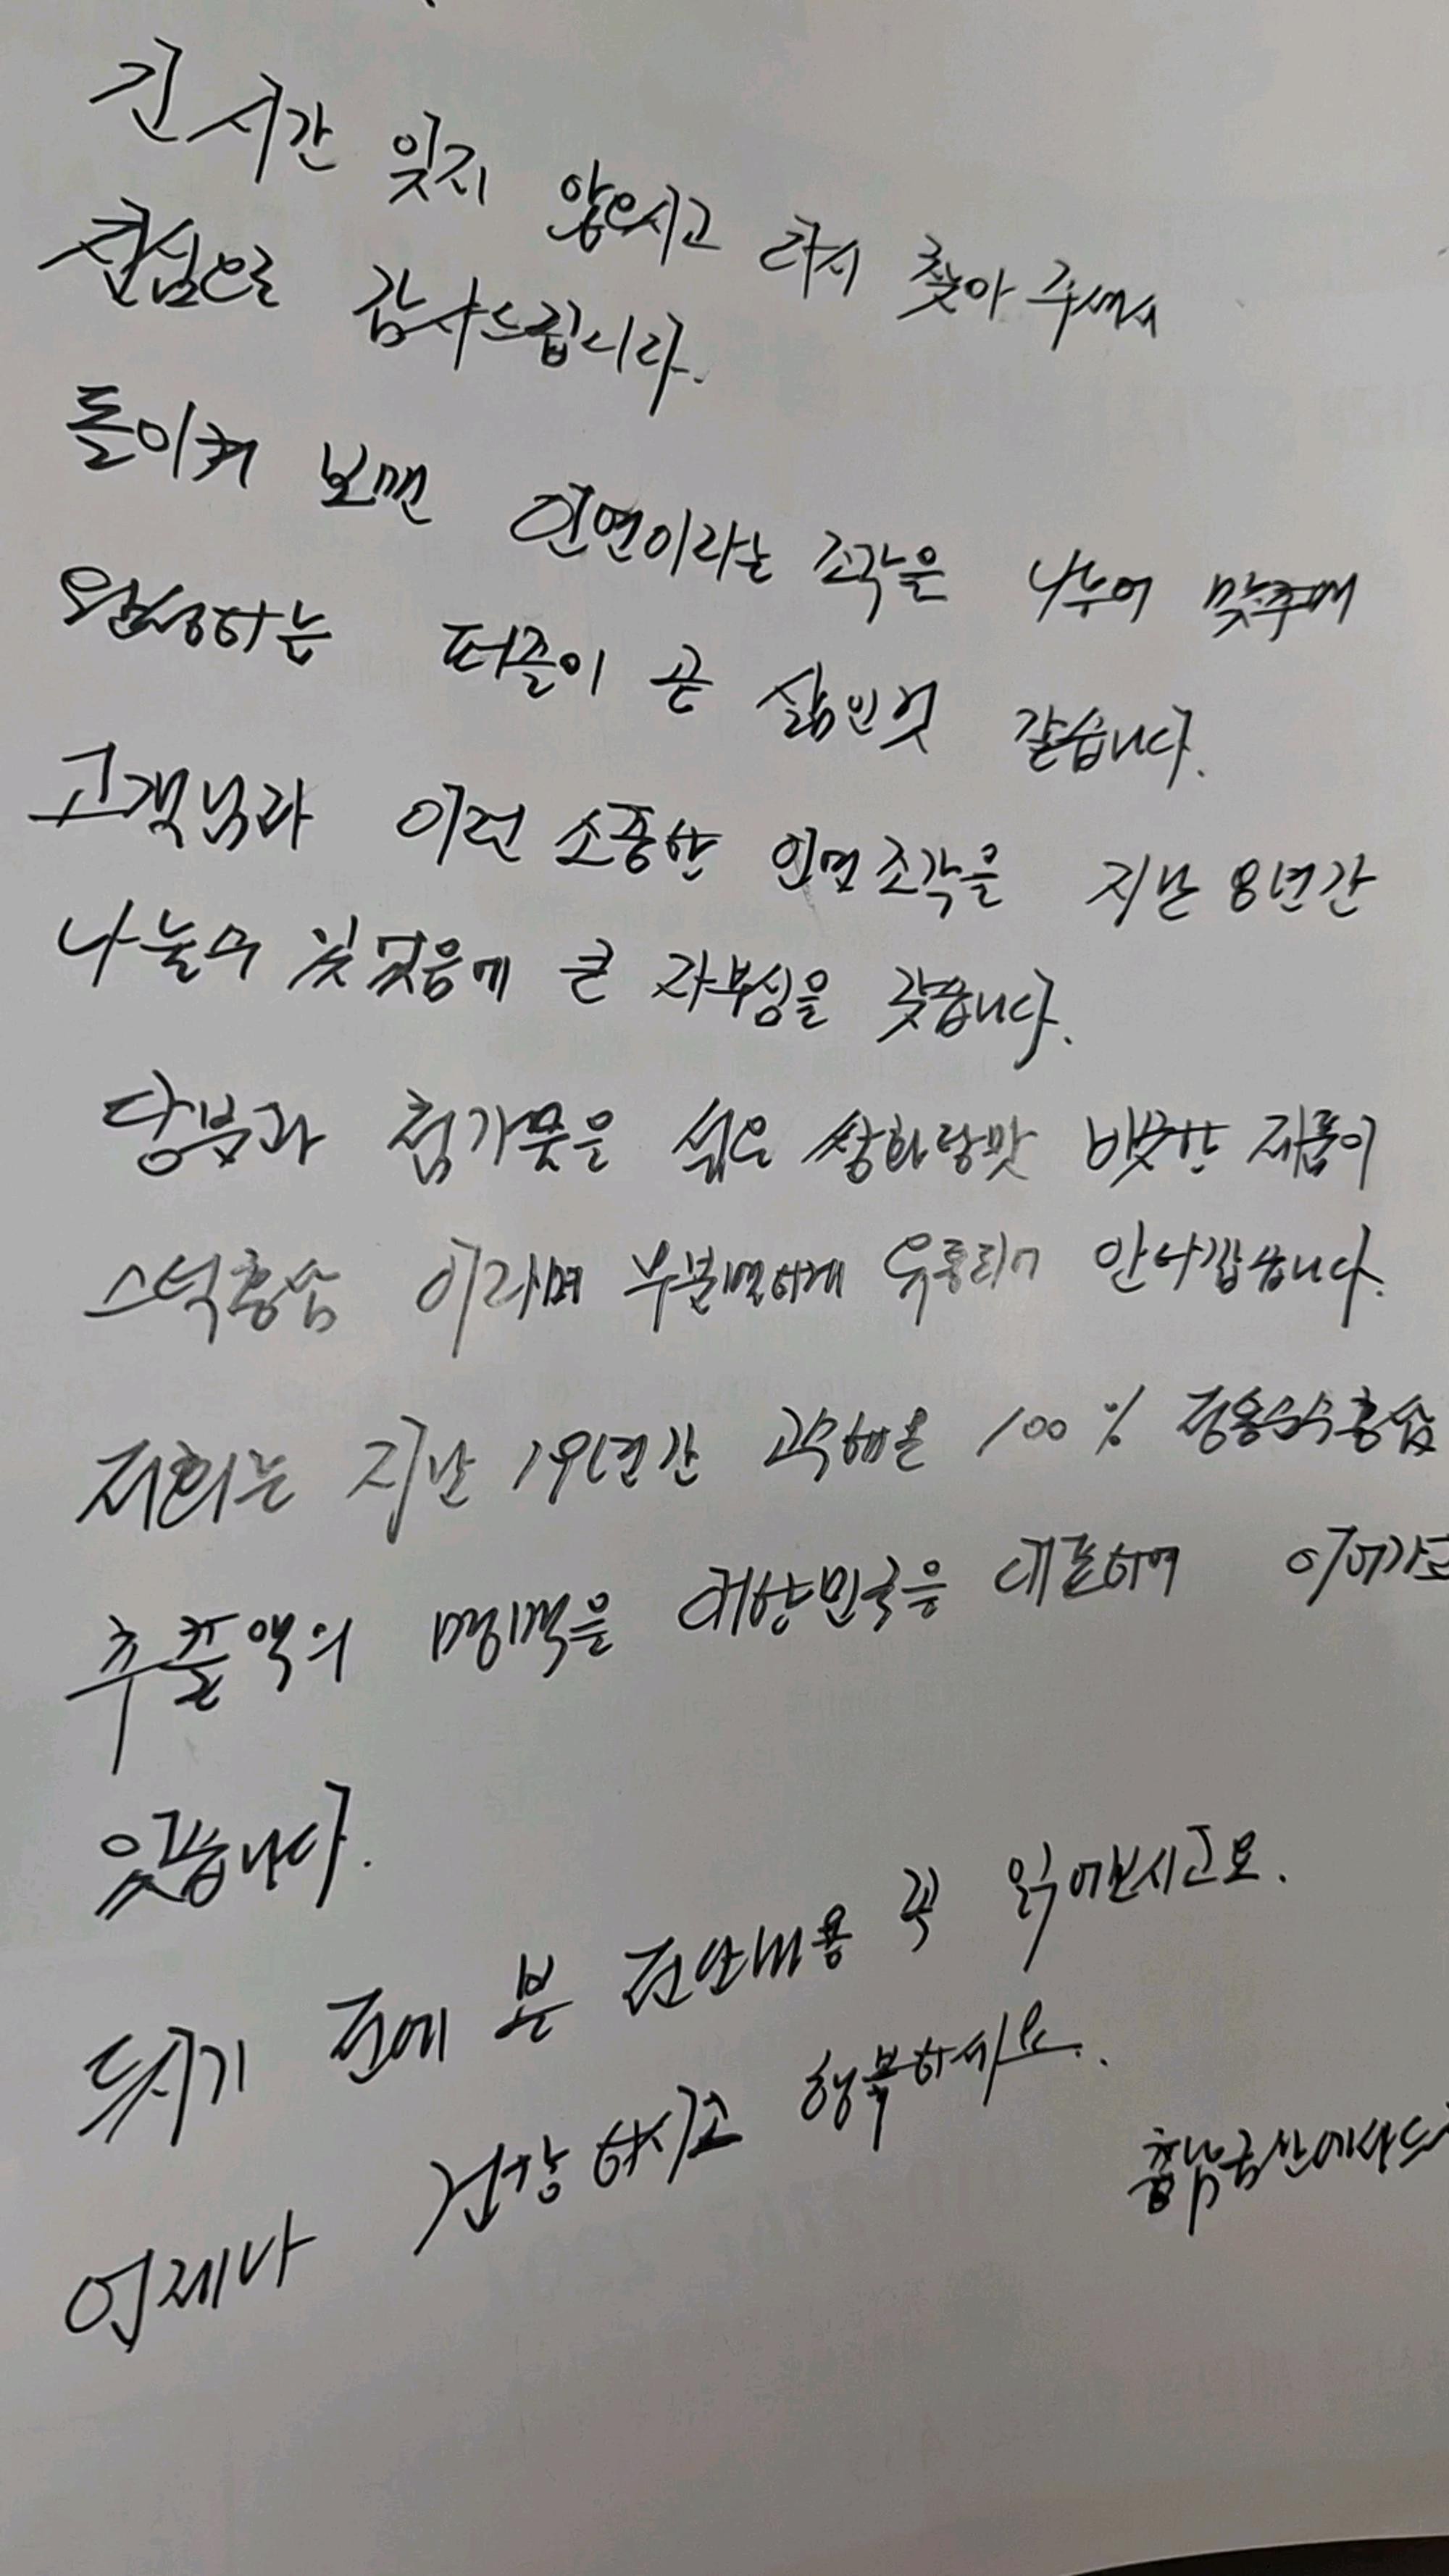 긴 시간 잊지 않으시고 다시 찾아 주셔서
진심으로 감사드립니다.
돌이켜 보면 인연이라는 조각을 나누어 맞추며
완성하는 퍼즐이 곧 삶인것 같습니다.
고객님과 이런 소중한 인연조각을 지난 8년간
나눌수 있었음에 큰 자부심을 갖습니다.
당분과 첨가물을 섞은 쌍화탕맛 비슷한 제품이
스틱홍삼 이라며 무분별하게 유통되어 안타깝습니다.
저희는 지난 19년간 고수해온 100% 정통순수홍삼
추출액의 명맥을 대한민국을 대표하여 이어가고
있습니다.
드시기 전에 본 전단내용 꼭 읽어보시고요.
언제나 건강하시고 행복하세요..
충남금산에서